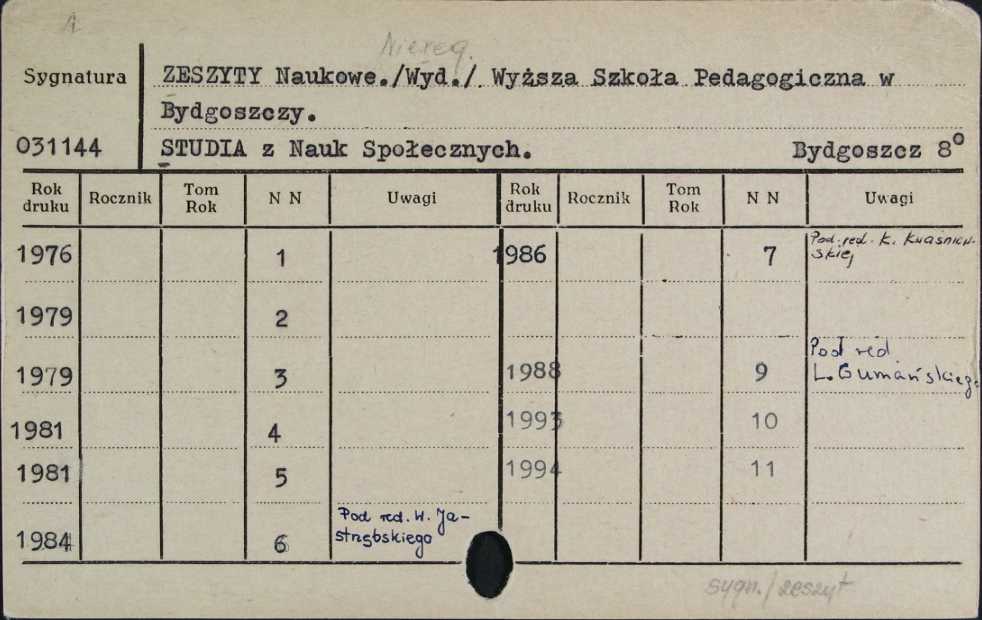 A
Niereg.
Sygnatura
ZESZYTY Naukowe./Wyd./ Wyższa Szkoła Pedagogiczna w
Bydgoszczy.
031144
STUDIA z Nauk Społecznych. Bydgoszcz 8°
Rok druku Rocznik Tom Rok N N Uwagi Rok druku Rocznik Tom Rok N N Uwagi
1976 1 1986 7 Pod. red. K. Kwaśniew-
skiej
1979 2
Pod red.
1979 3 1988 9 L. Gumańskiego
1981 4 1993 10
1981 5 1994 11
Pod red. W. Ja-
1984 6 strzębskiego
sygn./zeszyt